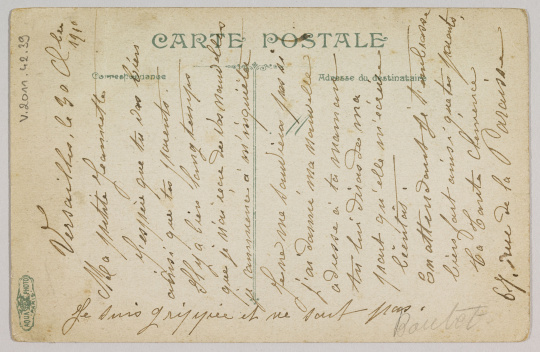 CARTE POSTALE
Correspondance
Adresse du destinataire
Versailles, le 30
1918
Ma petite Jeannette
J'espère que tu vas bien
ainsi que tes parents
Il y a bien longtemps
que je n'ai reçu de vos nouvelles
je commence à m'inquiéter
Je ne me souviens pas si
j'ai donné ma nouvelle
adresse à ta maman
tu lui diras de ma
part qu'elle m'écrive
bientôt
en attendant je t'embrasse
bien fort ainsi que tes parents,
Ta tante Clémence
67, rue de la Paroisse
Je suis grippée et ne sort pas.
V.2011.42.29